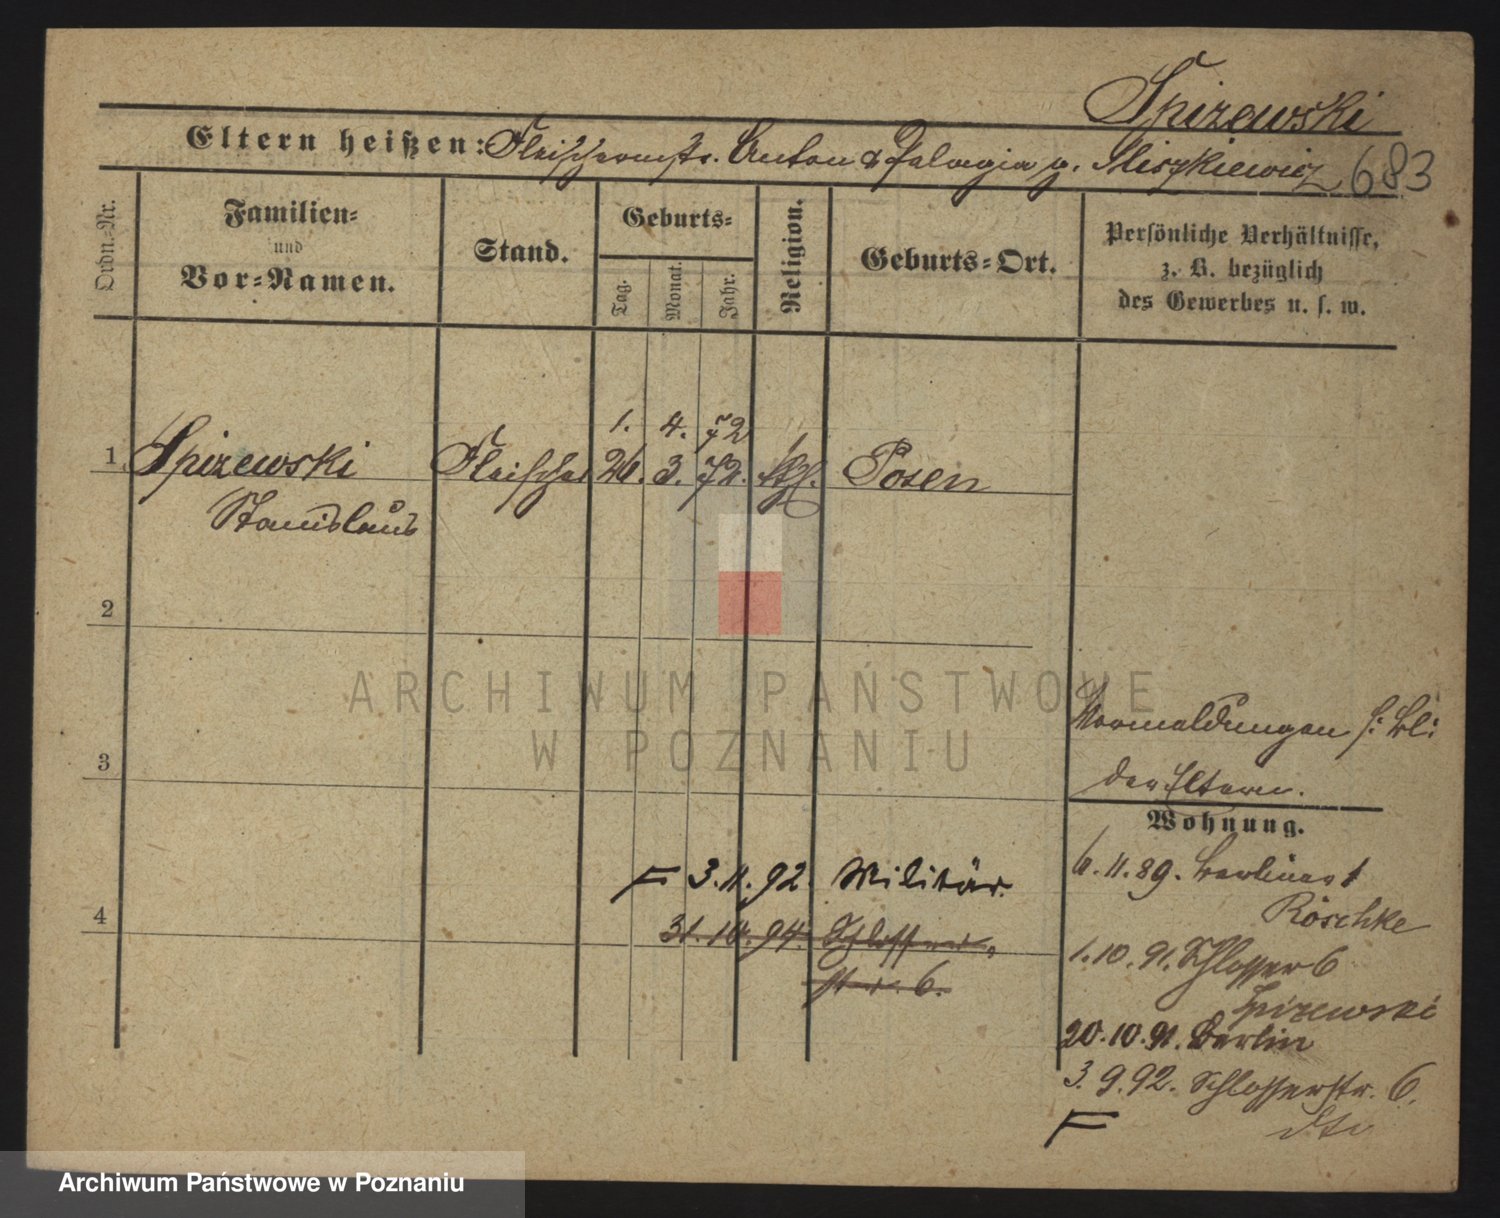 Spizewski
Eltern heißen: Fleischermstr. Anton & Pelagia g. Sliszkiewicz 683
Ordn.-Nr.
Familien-
und
Vor-Namen.
Stand.
Geburts-
Tag.
Monat.
Jahr.
Religion.
Geburts-Ort.
Persönliche Verhältnisse,
z. B. bezüglich
des Gewerbes u. s. w.
1. 4. 72
1 Spizewski Fleischer 26. 3. 72. kth. Posen
Stanislaus
2
ARCHIWUM PAŃSTWOWE
W POZNANIU
Vormeldungen s: Bl:
3
der Eltern.
Wohnung.
6.11.89. Berliner 1
F 3.11.92. Militär.
Röschke
4
31.10.94. Schlosser-
1.10.91. Schlosser 6
str. 6.
Spizewski
20.10.91. Berlin
3.9.92. Schlosserstr. 6.
F dto
Archiwum Państwowe w Poznaniu